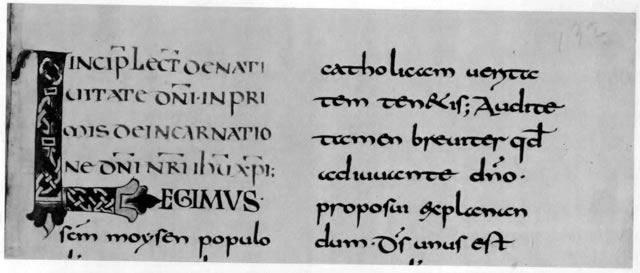 132
INCIP̅ LECT̅ DE NATI
UITATE DN̅I · IN PRI
MIS DE INCARNATIO
NE DN̅I NR̅I IHU̅ XP̅I;
LEGIMVS·
scm̅ moysen populo
catholicam uerita
tem ten&is; Audite
tamen breuiter qd̅
adiuuante dn̅o·
proposui explanan
dum· Ds̅ unus est